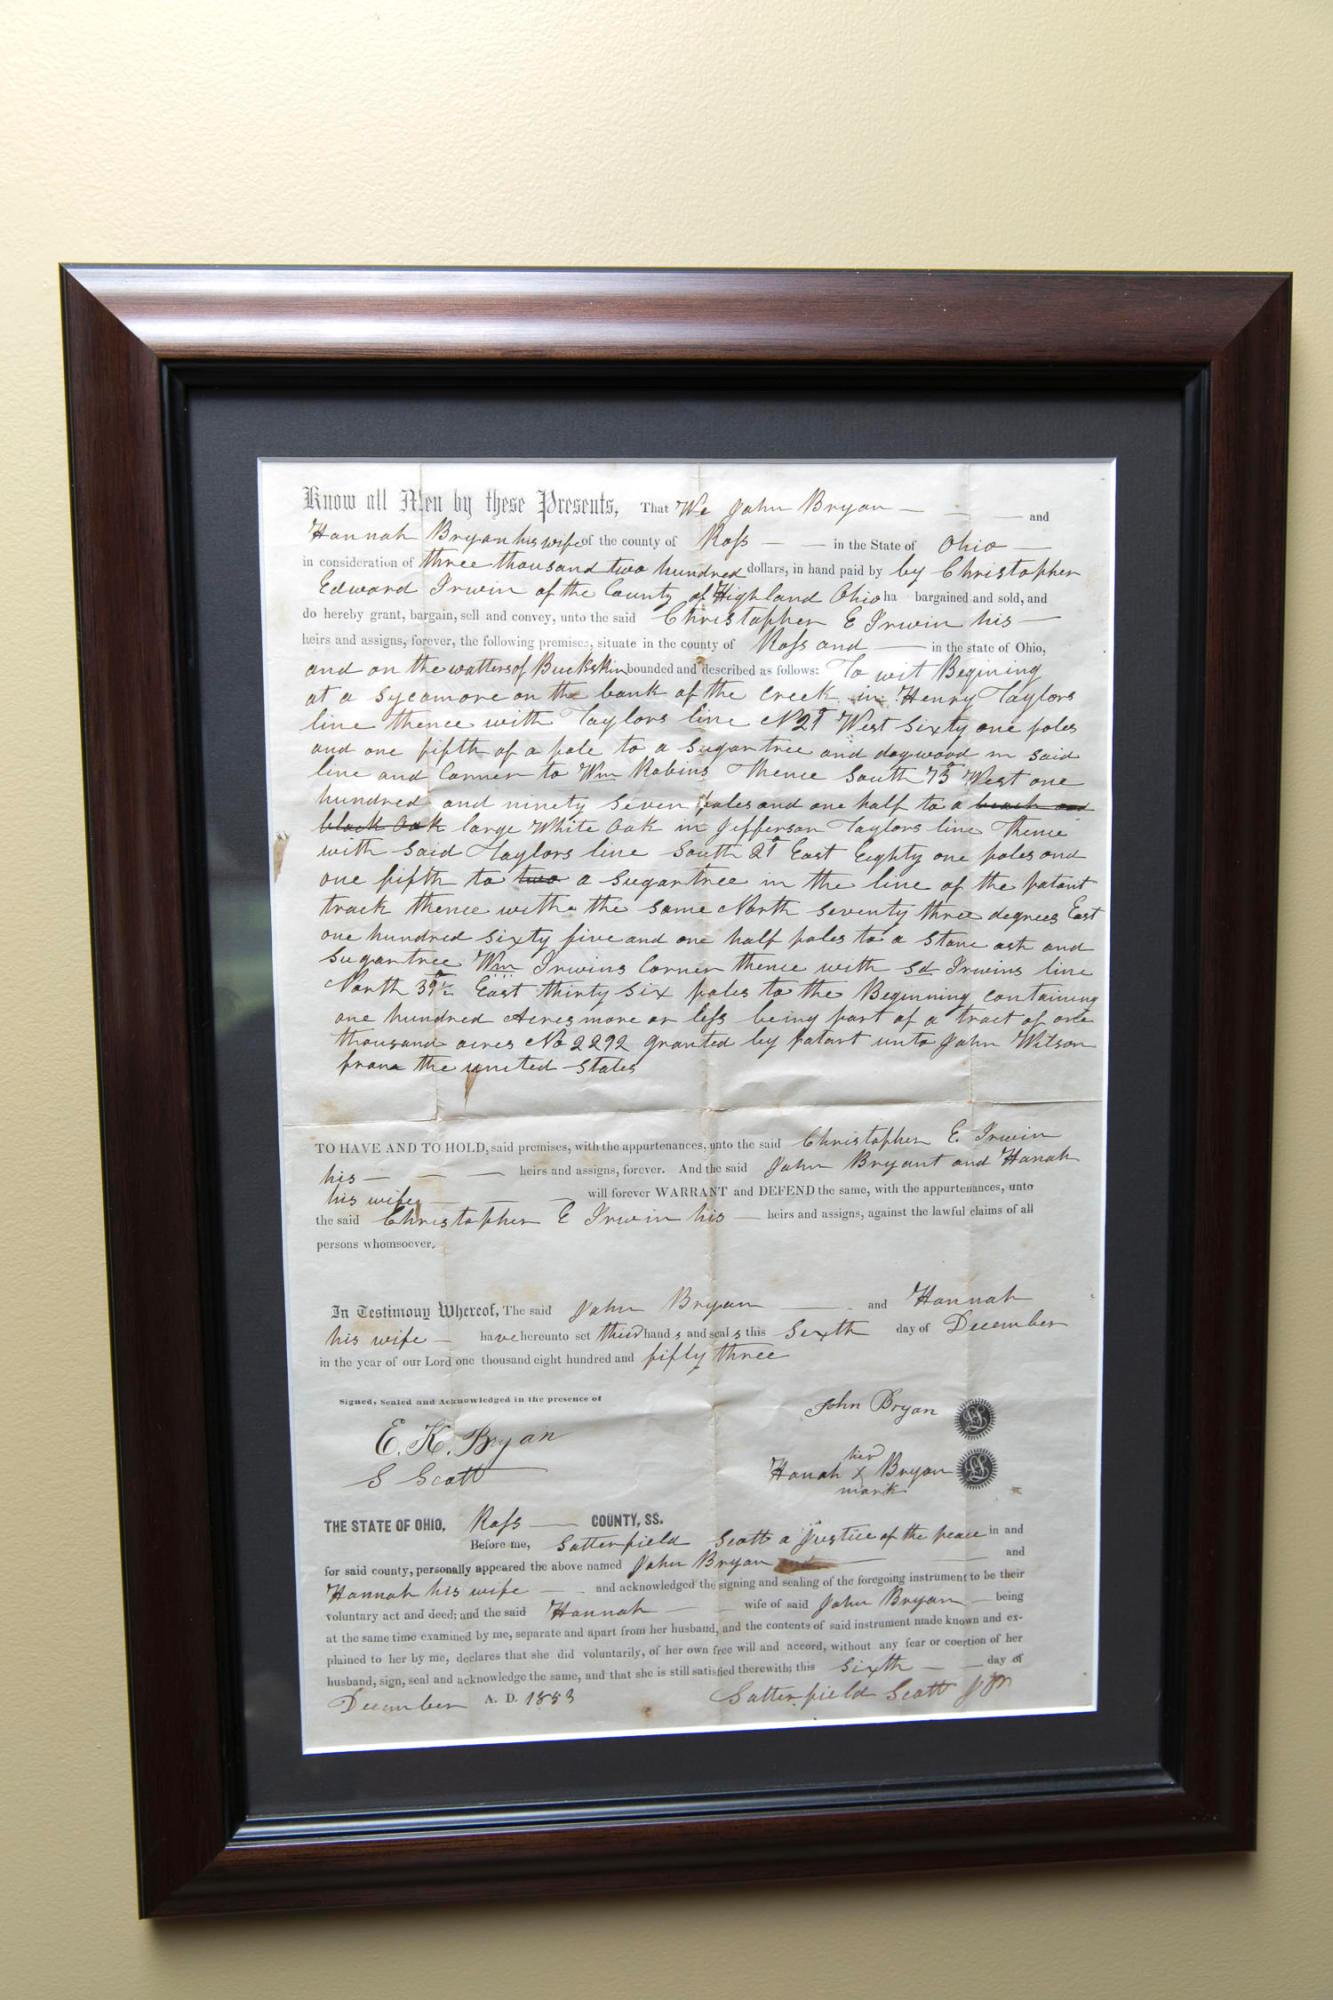 Know all Men by these Presents, That We John Bryan and
Hannah Bryan his wife of the county of Ross in the State of Ohio
in consideration of three thousand two hundred dollars, in hand paid by by Christopher
Edward Irwin of the County of Highland Ohio ha bargained and sold, and
do hereby grant, bargain, sell and convey, unto the said Christopher E Irwin his
heirs and assigns, forever, the following premises, situate in the county of Ross and in the state of Ohio,
and on the watters of Buckskin bounded and described as follows: To wit Begining
at a Sycamore on the bank of the creek in Henry Taylors
line thence with Taylors line N 2° West Sixty one poles
and one fifth of a pole to a Sugartree and dogwood in said
line and Corner to Wm Robins Thence South 73° West one
hundred and ninety Seven poles and one half to a beach and
black Oak large White Oak in Jefferson Taylors line Thence
with said Taylors line South 2° East Eighty one poles and
one fifth to two a Sugartree in the line of the patant
track thence with the same North Seventy three degrees East
one hundred Sixty five and one half poles to a Stone ash and
Sugartree Wm Irwins Corner thence with Sd Irwins line
North 39½° East thirty Six poles to the Beginning containing
one hundred Acres more or less being part of a tract of one
thousand acres No 2292 granted by patant unto John Witson
from the united States
TO HAVE AND TO HOLD, said premises, with the appurtenances, unto the said Christopher E. Irwin
his heirs and assigns, forever. And the said John Bryant and Hanah
his wife will forever WARRANT and DEFEND the same, with the appurtenances, unto
the said Christopher E Irwin his heirs and assigns, against the lawful claims of all
persons whomsoever.
In Testimony Whereof, The said John Bryan and Hannah
his wife have hereunto set their hand s and seal s this Sixth day of December
in the year of our Lord one thousand eight hundred and fifty three
Signed, Sealed and Acknowledged in the presence of
John Bryan LS
E. K. Bryan
her
Hanah x Bryan LS
S Scott
mark
THE STATE OF OHIO, Ross COUNTY, SS.
Before me, Satterfield Scott a Justice of the peace in and
for said county, personally appeared the above named John Bryan and
Hannah his wife and acknowledged the signing and sealing of the foregoing instrument to be their
voluntary act and deed; and the said Hannah wife of said John Bryan being
at the same time examined by me, separate and apart from her husband, and the contents of said instrument made known and ex-
plained to her by me, declares that she did voluntarily, of her own free will and accord, without any fear or coertion of her
husband, sign, seal and acknowledge the same, and that she is still satisfied therewith; this Sixth day of
December A. D. 1853 Satterfield Scott